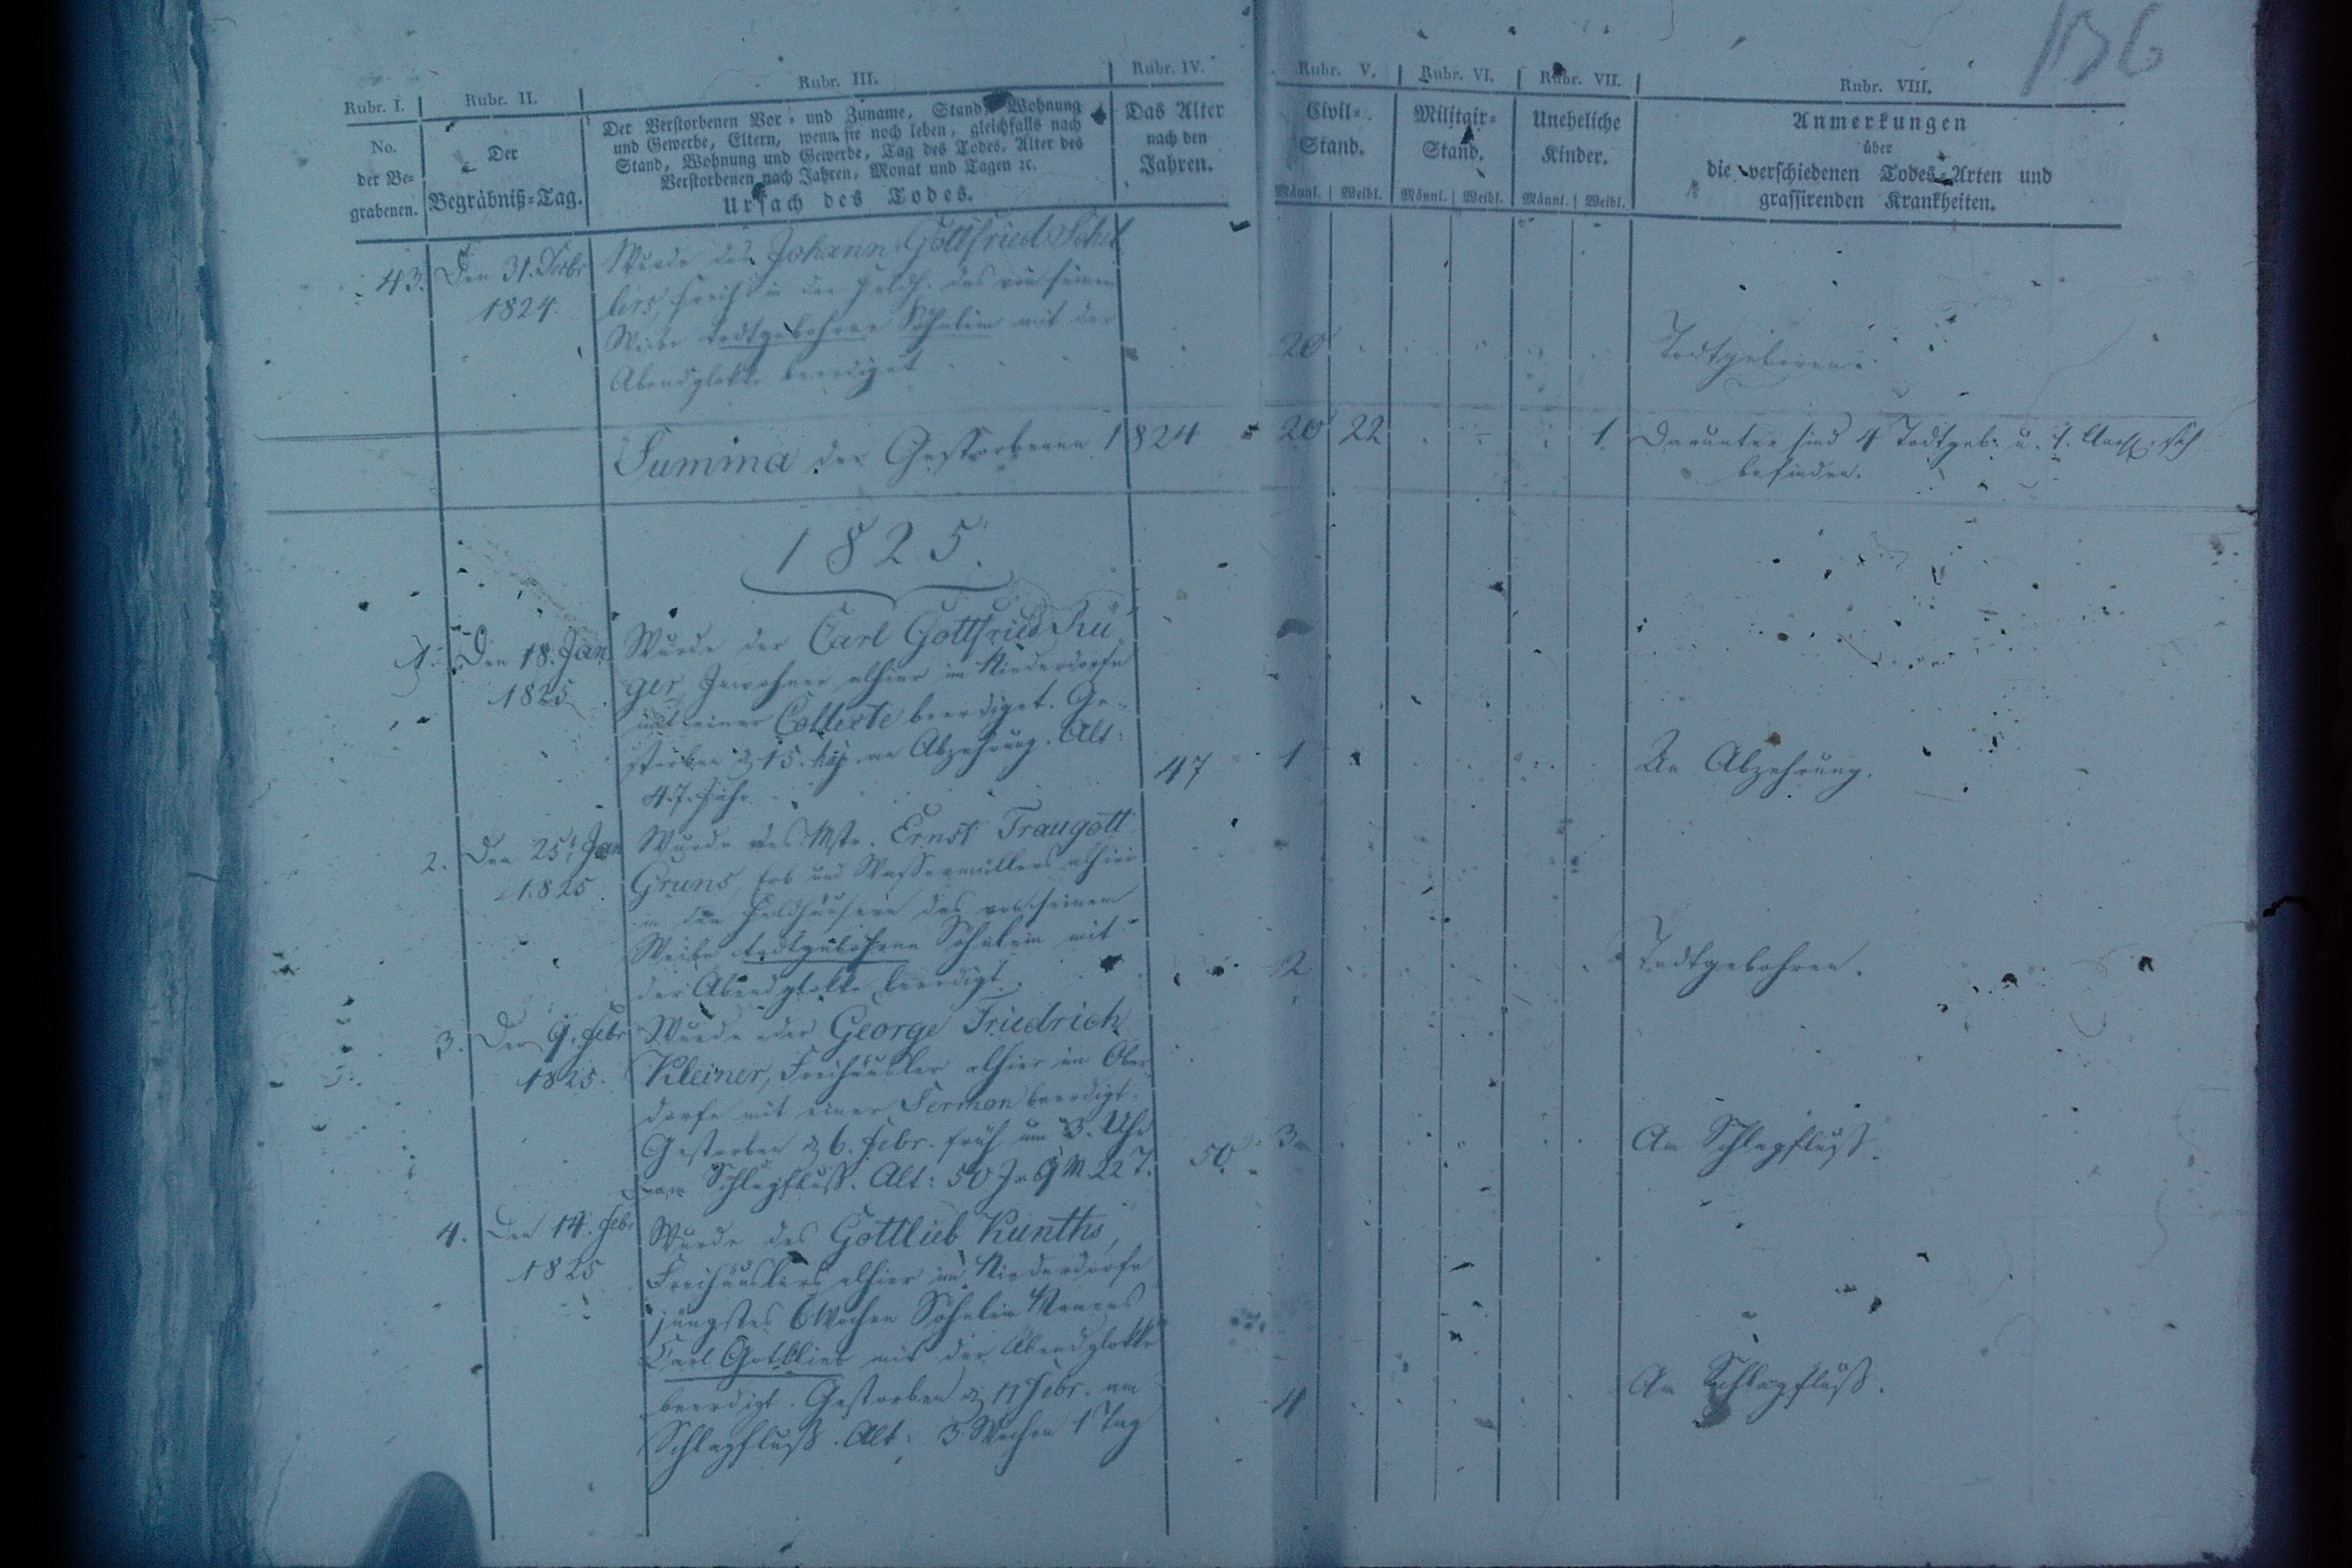 136
Rubr. I. Rubr. II. Rubr. III. Rubr. IV. Rubr. V. Rubr. VI. Rubr. VII. Rubr. VIII.
No.
der Be-
grabenen.
Der
Begräbniß-Tag.
Der Verstorbenen Vor- und Zuname, Stand, Wohnung
und Gewerbe, Eltern, wenn sie noch leben, gleichfalls nach
Stand, Wohnung und Gewerbe, Tag des Todes, Alter des
Verstorbenen nach Jahren, Monat und Tagen ꝛc.
Ursach des Todes.
Das Alter
nach den
Jahren.
Civil-
Stand.
Männl. Weibl.
Militair-
Stand.
Männl. Weibl.
Uneheliche
Kinder.
Männl. Weibl.
Anmerkungen
über
die verschiedenen Todes-Arten und
grassirenden Krankheiten.
43. Den 31. Decbr
1824.
Wurde des Johann Gottfried Schil
lers, in den das von seinem
Weibe todtgebohrne Söhnlein mit der
Abendglokke beerdiget
20
Todtgeboren
Summa der Gestorbenen 1824 20 22 1. Darunter sind 4 Todtgeb. u. 1.
befinden.
1825.
1. Den 18. Jan
1825
Wurde der Carl Gottfried Rü
ger, Inwohner alhier im Niederdorfe
mit einer Collecte beerdiget. Ge-
storben d. 15. an Abzehrung. Alt:
47. Jahr.
47 1 An Abzehrung.
2. Den 25. Jan
1825.
Wurde des Mstr. Ernst Traugott
Gruns, Erb und Wassermüllers alhier
in den Feldhäusern das von seinem
Weibe todtgebohrne Söhnlein mit
der Abendglokke beerdigt.
2 Todtgebohren.
3. Den 9. Febr
1825.
Wurde der George Friedrich
Kleiner, Freihäusler alhier im Ober
dorfe mit einer Sermon beerdigt.
Gestorben d. 6. Febr. früh um 3. Uhr
am Schlagfluß. Alt: 50 J. 9 M 22 T.
50. 3 Am Schlagfluß.
4. Den 14. Febr
1825
Wurde des Gottlieb Kunths,
Freihäuslers alhier im Niederdorfe
jüngstes 6 Wochen Söhnlein Namens
Carl Gottlieb mit der Abendglokke
beerdigt. Gestorben d. 11 Febr. am
Schlagfluß. Alt: 3 Wochen 1 Tag
4 Am Schlagfluß.